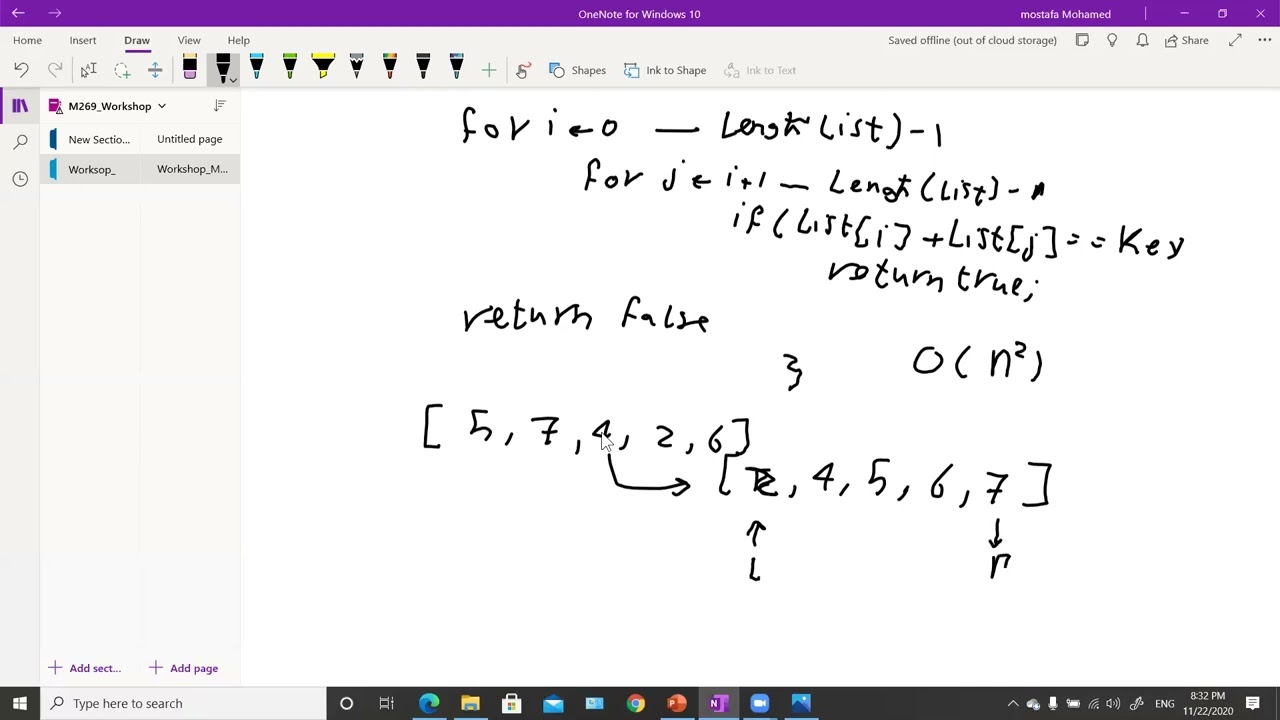 OneNote for Windows 10
mostafa Mohamed
Home Insert Draw View Help
Saved offline (out of cloud storage)
Share
Shapes
Ink to Shape
Ink to Text
M269_Workshop
New Sectio...
Untitled page
Worksop_
Workshop_M...
for i ← 0 — Length(List) - 1
for j ← i+1 — Lenght(List) -
if (List[i] + List[j] == Key
return true;
return false
}
O(n²)
[ 5, 7, 4, 2, 6 ]
[ 2, 4, 5, 6, 7 ]
↑ ↓
L r
Add sect...
Add page
Type here to search
ENG
8:32 PM
11/22/2020